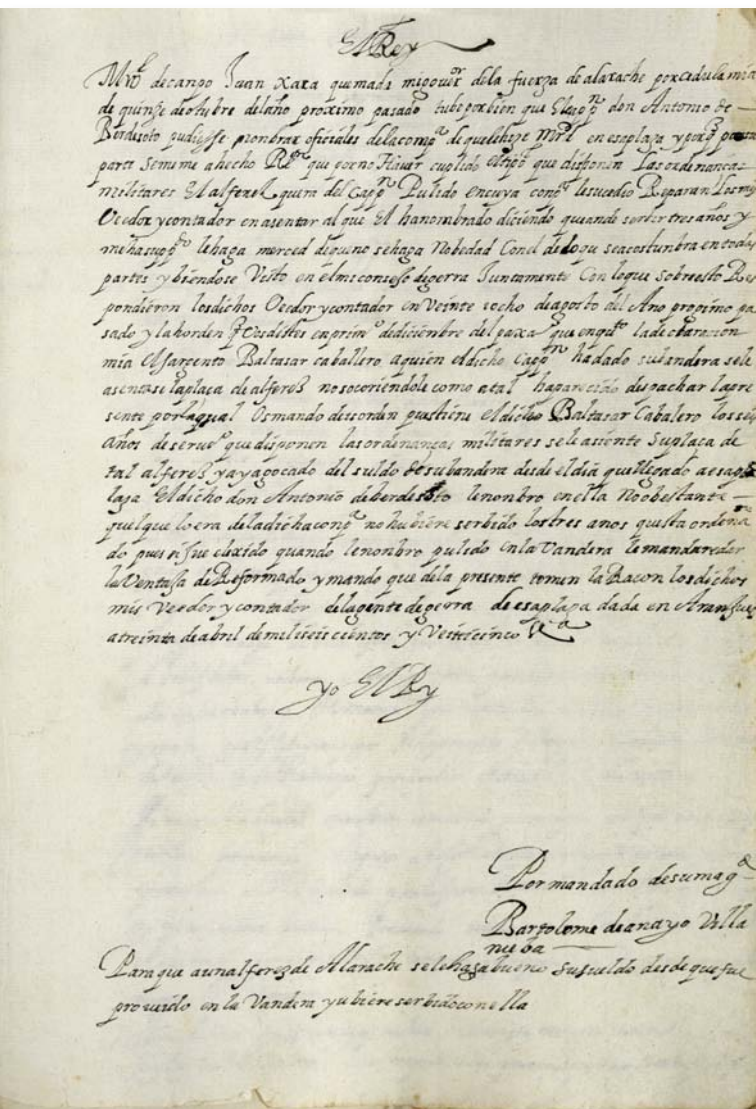 El Rey
Mre de canpo Juan Xara quemada mi gover.or dela fuerza de alarache por cedula mia
de quinze de otubre del año proximo pasado tube por bien que El capp.n don Antonio de
Berdesoto pudiesse nonbrar oficiales de la comp.a de que le hize Mrd en esa plaza y por
parte Se me me a hecho Ron que por no Haver cuplido el tpo que disponen Las ordenanças
militares El alferez que era del Capp.n Pulido en cuya conp.a le sucedio Reparan Los mis
Veedor y contador en asentar al que El ha nonbrado diciendo que an de servir tres años y
me ha supp.do le haga merced de que no se haga Nobedad Con el de lo que se acostunbra en todas
partes y biendose Visto en el mi consejo de gerra Juntamente Con lo que Sobre esto Res
pondieron los dichos Veedor y contador en Veinte y ocho de agosto del Ano proximo pa
sado y la horden q Vos distes en prim.o de diciembre del para que en quanto la declaracion
mia El sargento Baltasar caballero a quien el dicho Capp.n ha dado su bandera se le
asentase la plaça de alferez no socoriendole como a tal ha parecido despachar la pre
sente por la qual Os mando des orden que si tiene el dicho Baltasar Cabalero los seis
Años de serui.o que disponen las ordenanças militares se le asiente Su plaça de
tal alferez y aya gocado del sueldo de su bandera desde el dia que llegado a esa p
laza El dicho don Antonio de berdesoto le nonbro en ella No obestante
quel que lo era de la dicha conp.a no hubiere serbido los tres anos que esta ordena
do pues si fue elexido quando le nonbro pulido en la Vandera le mandare dar
la Ventaja de Reformado y mando que de la presente tomen la Racon los dichos
mis Veedor y contador de la gente de gerra de esa plaça dada en Aranjuez
a treinta de abril de mil seis cientos y Veinteicinco
yo El Rey
Por mandado de su mag.d
Bartolome de anayo Villa
nueba
Para que a un alferez de Alarache se le haga bueno Su sueldo desde que fue
prouido en la Vandera y ubiere serbido con ella